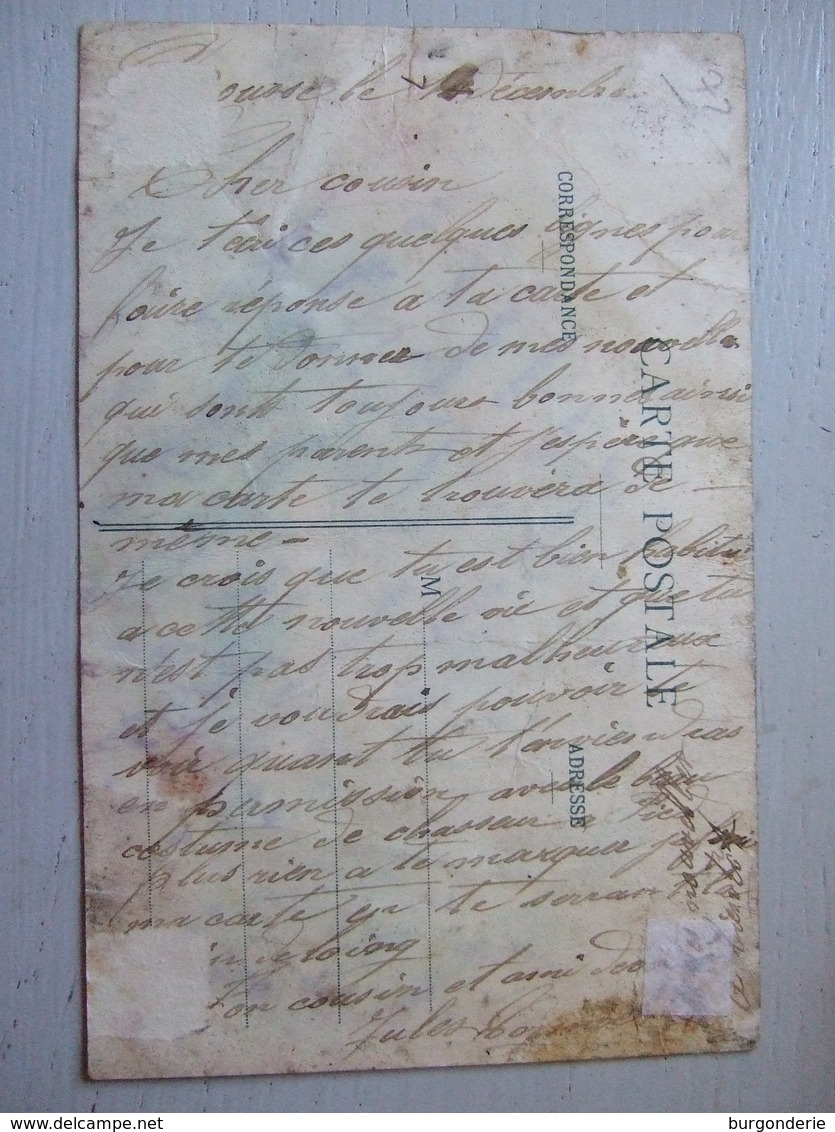 ousse le 1 décembre
Cher cousin
Je t'écri ces quelques lignes pour
faire réponse a ta carte et
pour te donner de mes nouvelle
qui sont toujours bonne ainsi
que mes parents et j'espère que
ma carte te trouvera de
même
Je crois que tu est bien habitué
a cette nouvelle vie et que tu
n'est pas trop malheureux
et je voudrais pouvoir te
voir quant tu t'enviendras
en permission avec le beau
costume de chasseur a Pied
plus rien a te marqué
ma carte en te serrant la
de loing
Ton cousin et ami
Jules
CORRESPONDANCE
CARTE POSTALE
M
ADRESSE
http://www.delcampe.net
burgonderie